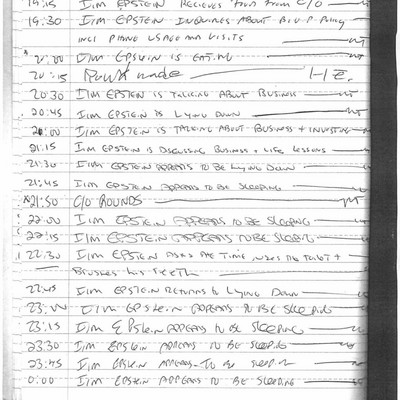 19:15 I/m EPSTEIN RECIEVES FROM C/O
19:30 I/m EPSTEIN INQUIRES ABOUT POLICY
INCL PHONE USAGE AND VISITS
20:00 I/m EPSTEIN IS EATING
20:15 Round made
20:30 I/m EPSTEIN IS TALKING ABOUT BUSINESS
20:45 I/m EPSTEIN IS LYING DOWN
21:00 I/m EPSTEIN IS TALKING ABOUT BUSINESS + INVESTING
21:15 I/m EPSTEIN IS DISCUSSING BUSINESS + LIFE LESSONS
21:30 I/m EPSTEIN APPEARS TO BE LYING DOWN
21:45 I/m EPSTEIN APPEARS TO BE SLEEPING
*21:50 C/O ROUNDS
22:00 I/m EPSTEIN APPEARS TO BE SLEEPING
22:15 I/m EPSTEIN APPEARS TO BE SLEEPING
22:30 I/m EPSTEIN ASKS THE TIME USES THE TOILET +
BRUSHES HIS TEETH
22:45 I/m EPSTEIN RETURNS TO LYING DOWN
23:00 I/m EPSTEIN APPEARS TO BE SLEEPING
23:15 I/m EPSTEIN APPEARS TO BE SLEEPING
23:30 I/m EPSTEIN APPEARS TO BE SLEEPING
23:45 I/m EPSTEIN APPEARS TO BE SLEEPING
0:00 I/m EPSTEIN APPEARS TO BE SLEEPING